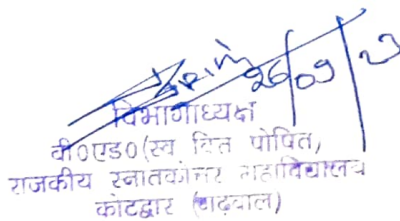 26/09/23
विभागाध्यक्ष
बी०एड०(स्व वित्त पोषित)
राजकीय स्नातकोत्तर महाविद्यालय
कोटद्वार (गढवाल)